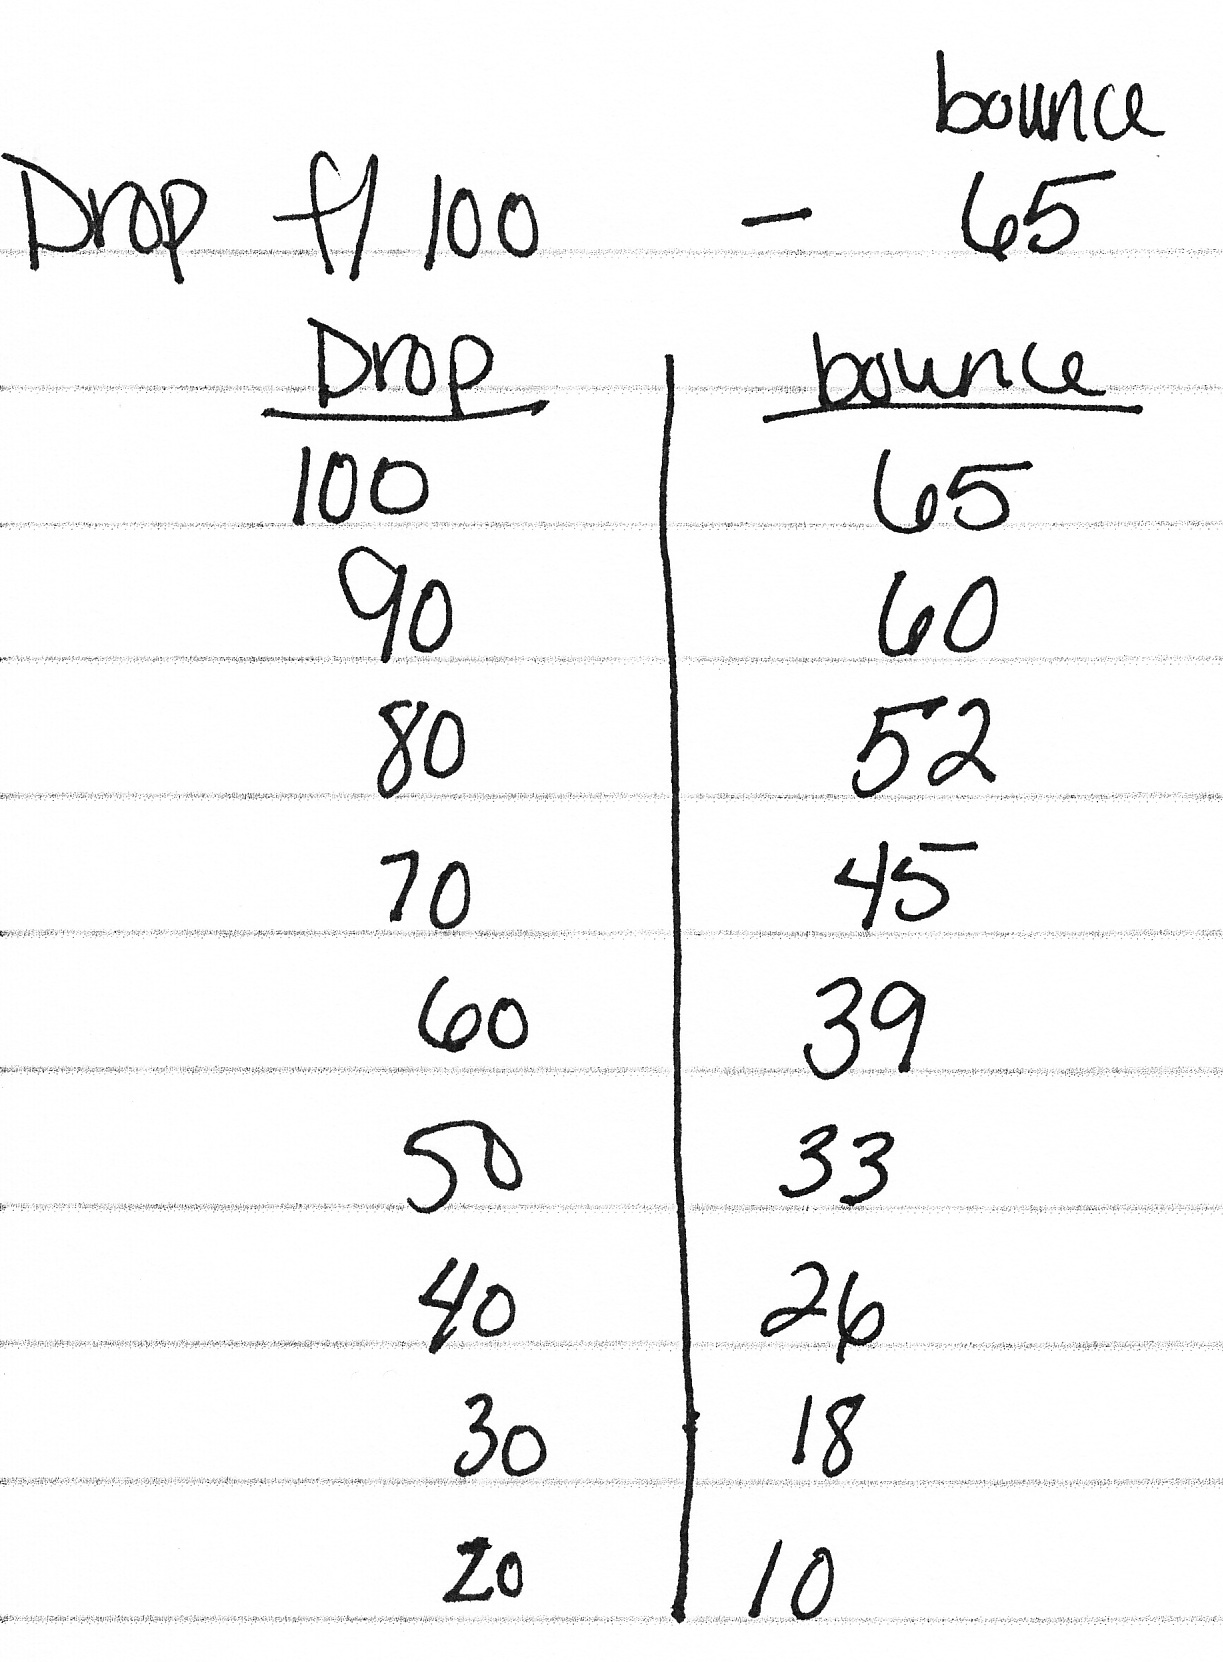 bounce
Drop f/ 100 - 65
Drop bounce
100 65
90 60
80 52
70 45
60 39
50 33
40 26
30 18
20 10